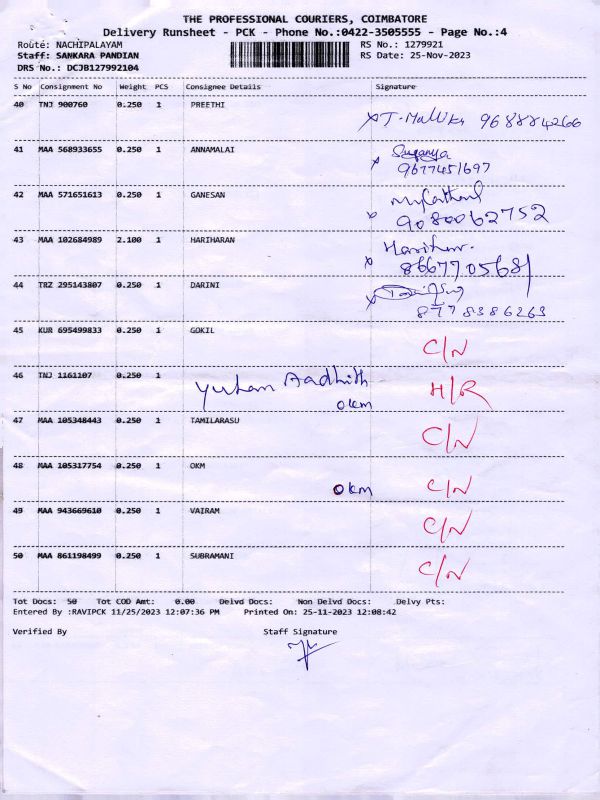 THE PROFESSIONAL COURIERS, COIMBATORE
Delivery Runsheet - PCK - Phone No.:0422-3505555 - Page No.:4
Route: NACHIPALAYAM RS No.: 1279921
Staff: SANKARA PANDIAN RS Date: 25-Nov-2023
DRS No.: DCJB127992104
S No Consignment No Weight PCS Consignee Details Signature
40 TNJ 900760 0.250 1 PREETHI
41 MAA 568933655 0.250 1 ANNAMALAI Suganya
9677451697
42 MAA 571651613 0.250 1 GANESAN
9080062752
43 MAA 102684989 2.100 1 HARIHARAN Hariharan
8667705681
44 TRZ 295143807 0.250 1 DARINI
8778386263
45 KUR 695499833 0.250 1 GOKIL C/N
46 TNJ 1161107 0.250 1 Aadhith H/R
OKM
47 MAA 105348443 0.250 1 TAMILARASU C/N
48 MAA 105317754 0.250 1 OKM OKM C/N
49 MAA 943669610 0.250 1 VAIRAM C/N
50 MAA 861198499 0.250 1 SUBRAMANI C/N
Tot Docs: 50 Tot COD Amt: 0.00 Delvd Docs: Non Delvd Docs: Delvy Pts:
Entered By :RAVIPCK 11/25/2023 12:07:36 PM Printed On: 25-11-2023 12:08:42
Verified By Staff Signature